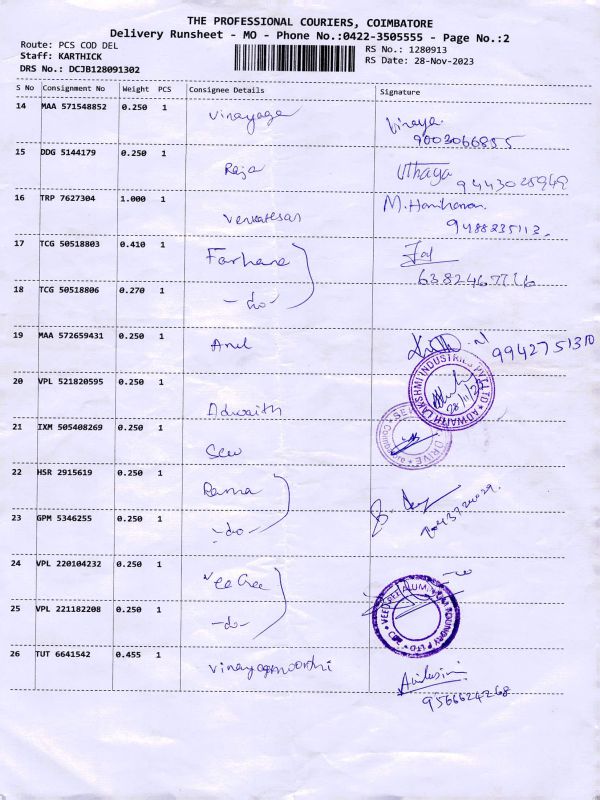 THE PROFESSIONAL COURIERS, COIMBATORE
Delivery Runsheet - MO - Phone No.:0422-3505555 - Page No.:2
Route: PCS COD DEL
Staff: KARTHICK
DRS No.: DCJB128091302
RS No.: 1280913
RS Date: 28-Nov-2023
S No Consignment No Weight PCS Consignee Details Signature
14 MAA 571548852 0.250 1 Vinayaga Vinaya.
9003066855
15 DDG 5144179 0.250 1 Raja Uthaya 9443025949
16 TRP 7627304 1.000 1 Venkatesan M.Hariharan.
9488235113.
17 TCG 50518803 0.410 1 Farhana
6382467716
18 TCG 50518806 0.270 1 -do-
19 MAA 572659431 0.250 1 Anil 9942751310
20 VPL 521820595 0.250 1 Adwaith ADWAITH LAKSHMI INDUSTRIES PVT LTD
28/11/23
21 IXM 505408269 0.250 1 Sew SEW DRIVE
22 HSR 2915619 0.250 1 Rama
23 GPM 5346255 0.250 1 -do-
24 VPL 220104232 0.250 1 Vee Gee
25 VPL 221182208 0.250 1 -do-
26 TUT 6641542 0.455 1 Vinayagamoorthi
9566624268